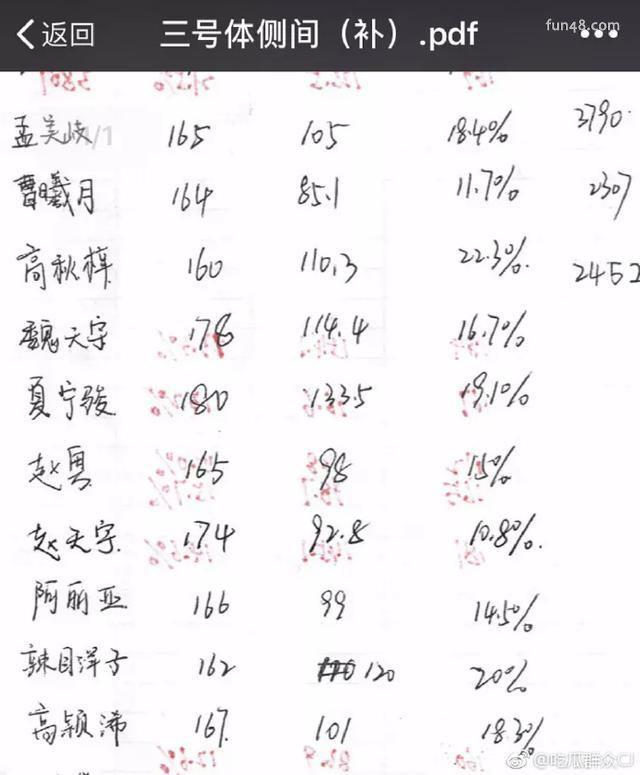 返回 三号体侧间（补）.pdf fun48.com
孟美岐/1 165 105 18.4% 3790
曹曦月 164 85.1 11.7% 2307
高秋梓 160 110.3 22.3% 2452
魏天宇 178 114.4 16.7%
夏宁骏 180 133.5 19.1%
赵粤 165 98 15%
赵天宇 174 92.8 10.8%
阿丽亚 166 99 14.5%
辣目洋子 162 120 20%
高颖浠 167 101 18.3%
@吃瓜群众CJ